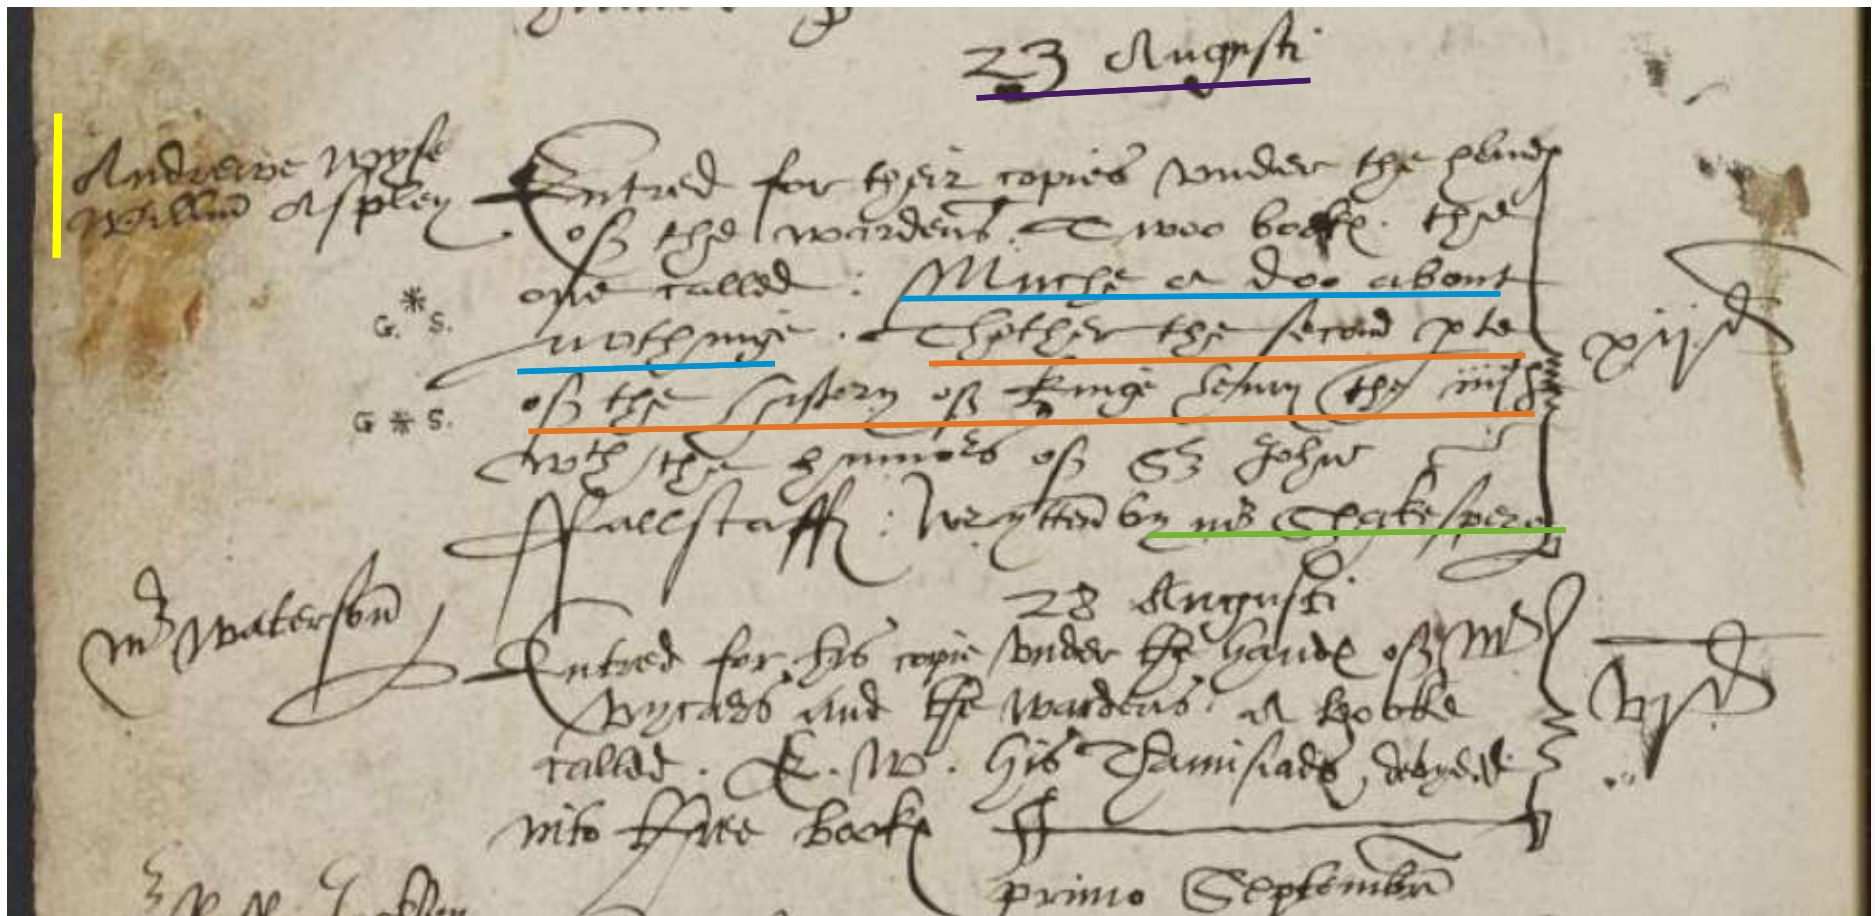 23 Augusti
Andrewe Wyse
Willm Aspley
Entred for their copies vnder the handes
of the wardens. Twoo bookes. the
one called: Muche a doo about
G. * S.
nothinge. Thother the second pte
of the history of kinge henry the iiijth
G * S.
wth the humors of Sr John
ffallstaff: Wrytten by mr Shakespere
xijd
28 Augusti
mr waterson
Entred for his copie vnder the handes of Mr
vycars and the wardens. A booke
called. E. W. his Thamisiads, devyded
into three bookes
vjd
primo Septembr